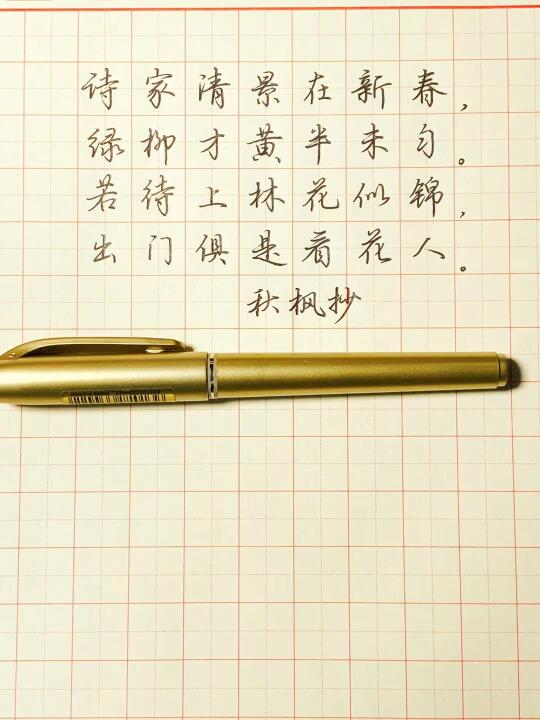 诗家清景在新春，
绿柳才黄半未匀。
若待上林花似锦，
出门俱是看花人。
秋枫抄